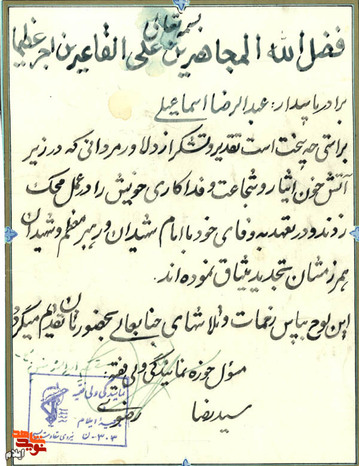 بسمه تعالی
فضل الله المجاهدین علی القاعدین اجرا عظیما
برادر پاسدار: عبدالرضا اسماعیلی
براستی چه سخت است تقدیر و تشکر از دلاور مردانی که در زیر
آتش خون ایثار و شجاعت و فداکاری خویش را در عمل محک
زدند و در تعهد به وفای خود با امام شهیدان و رهبر معظم و شهیدان
همرزمشان تجدید میثاق نموده اند.
این لوح بپاس زحمات و تلاشهای جنابعالی بحضورتان تقدیم میگردد
مسؤل حوزه نمایندگی ولی فقیه
سیدرضا
نمایندگی ولی فقیه
ایلام
۳۰۳-ن
نوید شاهد
ایلام